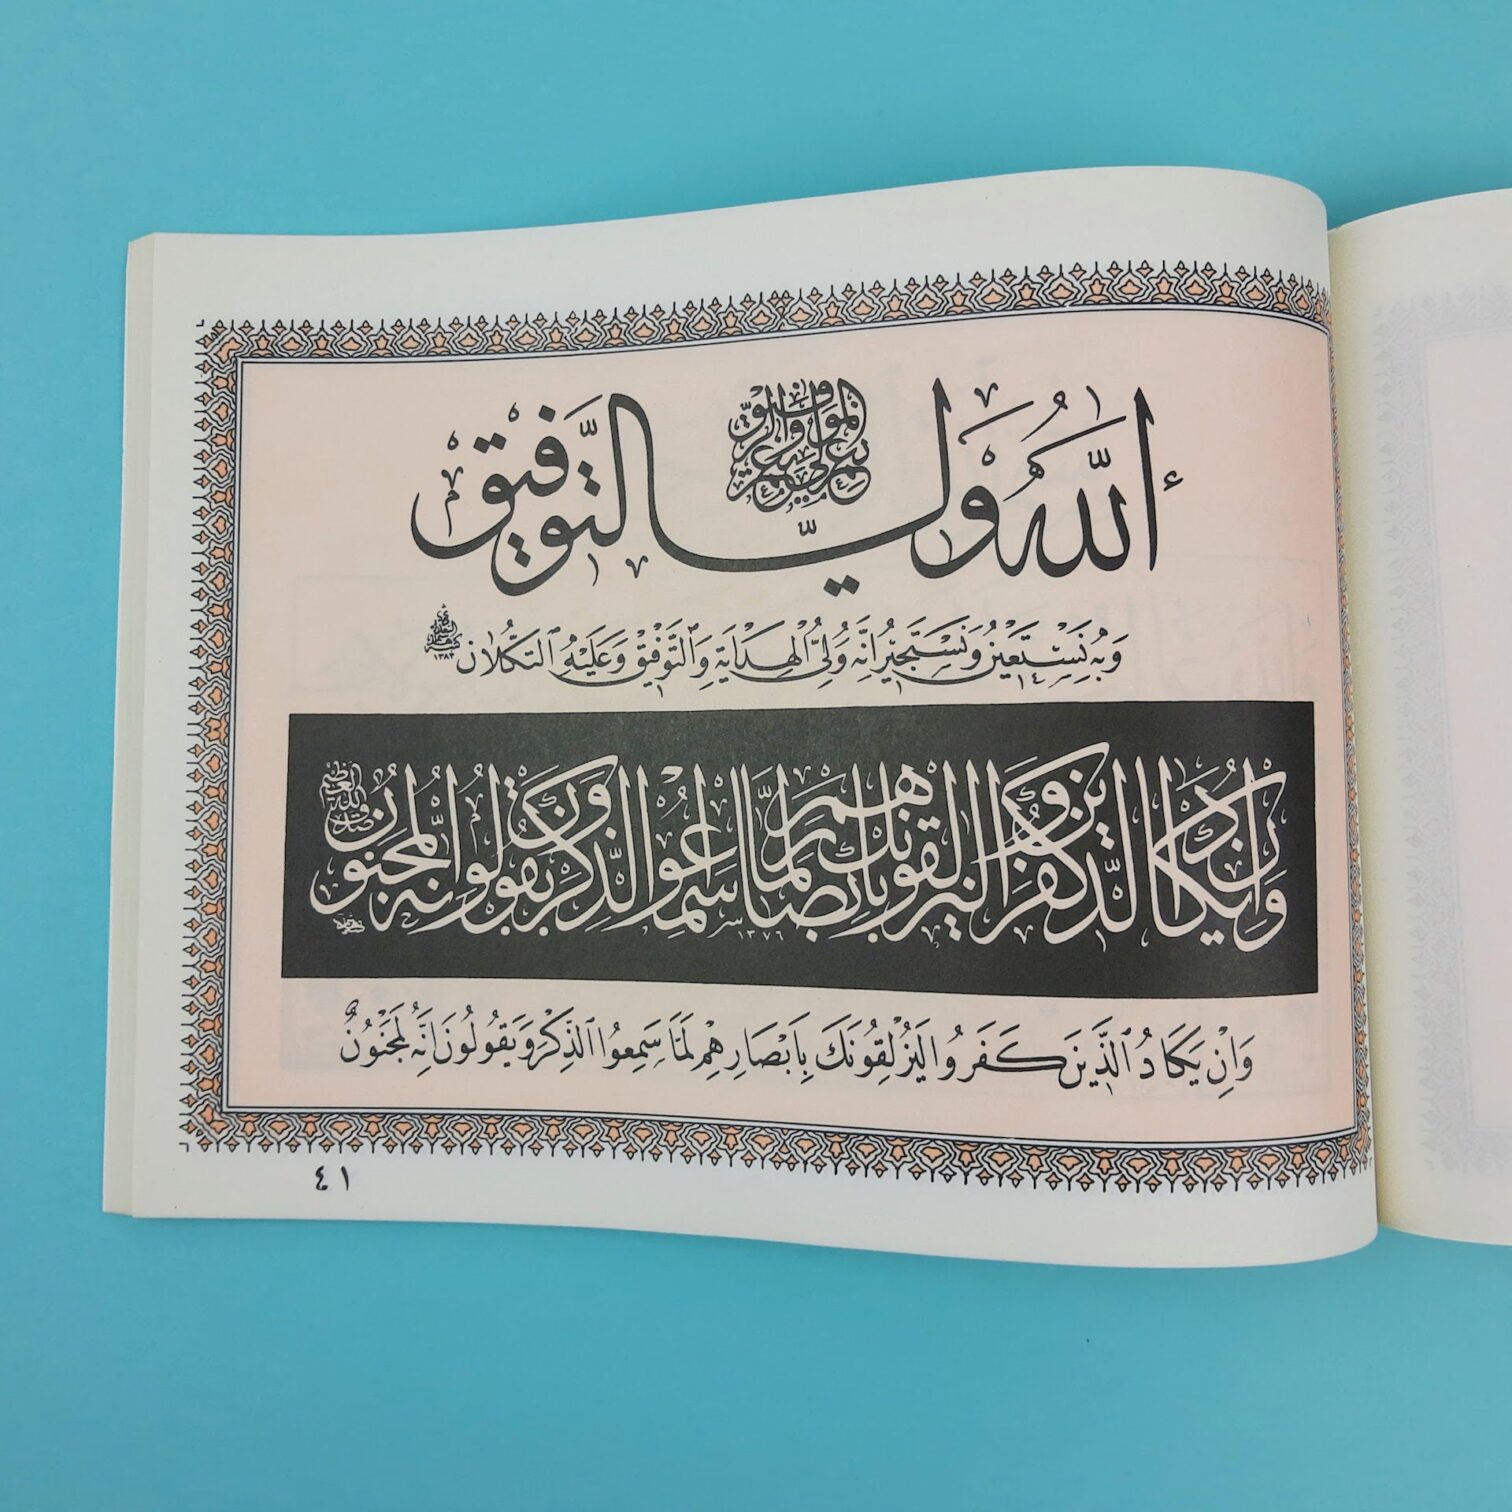 ٱللّٰهُ وَلِيُّ التَّوْفِيقِ
وَبِهِ نَسْتَعِينُ وَنَسْتَجِيرُ إِنَّهُ وَلِيُّ الْهِدَايَةِ وَالتَّوْفِيقِ وَعَلَيْهِ التُّكْلَان
١٣٨٣
وَإِن يَكَادُ الَّذِينَ كَفَرُوا لَيُزْلِقُونَكَ بِأَبْصَارِهِمْ لَمَّا سَمِعُوا الذِّكْرَ وَيَقُولُونَ إِنَّهُ لَمَجْنُونٌ
صدق الله العظيم
١٣٧٦
وَاِنْ يَكَادُ ٱلَّذِينَ كَفَرُوا لَيُزْلِقُونَكَ بِاَبْصَارِهِمْ لَمَّا سَمِعُوا ٱلذِّكْرَ وَيَقُولُونَ اِنَّهُ لَمَجْنُونٌ
٤١